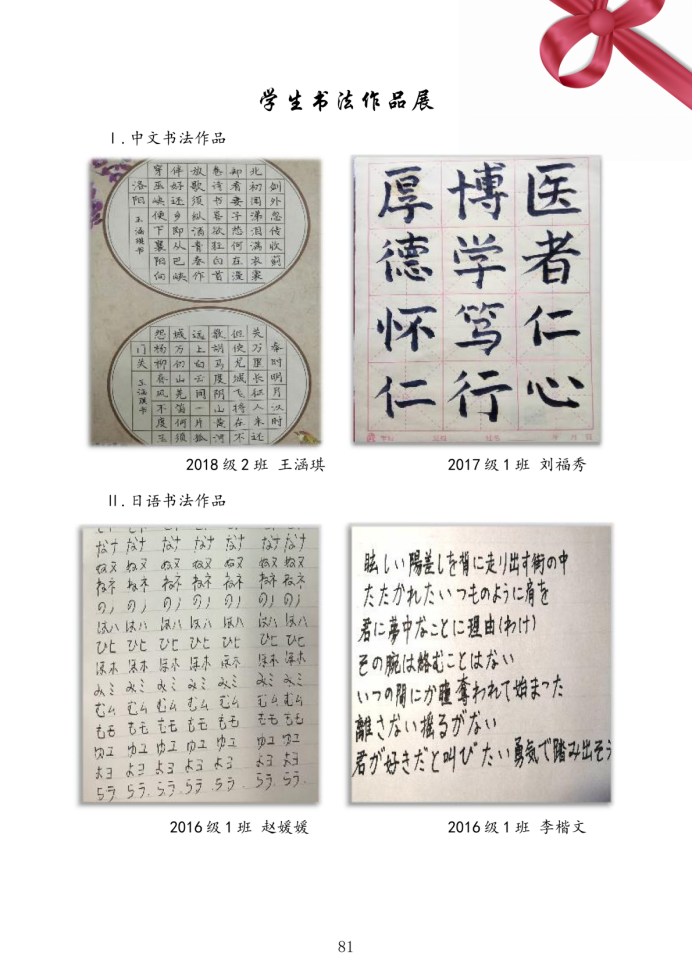 学生书法作品展
Ⅰ.中文书法作品
剑外忽传收蓟
北初闻涕泪满衣裳
却看妻子愁何在漫
卷诗书喜欲狂白首
放歌须纵酒青春作
伴好还乡即从巴峡
穿巫峡便下襄阳向
洛阳 王涵琪书
秦时明月汉时
关万里长征人未还
但使龙城飞将在不
教胡马度阴山黄河
远上白云间一片孤
城万仞山羌笛何须
怨杨柳春风不度玉
门关 王涵琪书
医者仁心
博学笃行
厚德怀仁
2018级2班 王涵琪
2017级1班 刘福秀
Ⅱ.日语书法作品
なナ なナ なナ なナ なナ なナ なナ
ぬヌ ぬヌ ぬヌ ぬヌ ぬヌ ぬヌ ぬヌ
ねネ ねネ ねネ ねネ ねネ ねネ ねネ
のノ のノ のノ のノ のノ のノ のノ
はハ はハ はハ はハ はハ はハ はハ
ひヒ ひヒ ひヒ ひヒ ひヒ ひヒ ひヒ
ほホ ほホ ほホ ほホ ほホ ほホ ほホ
みミ みミ みミ みミ みミ みミ みミ
むム むム むム むム むム むム むム
もモ もモ もモ もモ もモ もモ もモ
ゆユ ゆユ ゆユ ゆユ ゆユ ゆユ ゆユ
よヨ よヨ よヨ よヨ よヨ よヨ よヨ
らラ らラ らラ らラ らラ らラ らラ
眩しい陽差しを背に走り出す街の中
たたかれたいつものように肩を
君に夢中なことに理由(わけ)
その腕は絡むことはない
いつの間にか瞳奪われて始まった
離さない揺るがない
君が好きだと叫びたい勇気で踏み出そう
2016级1班 赵媛媛
2016级1班 李楷文
81